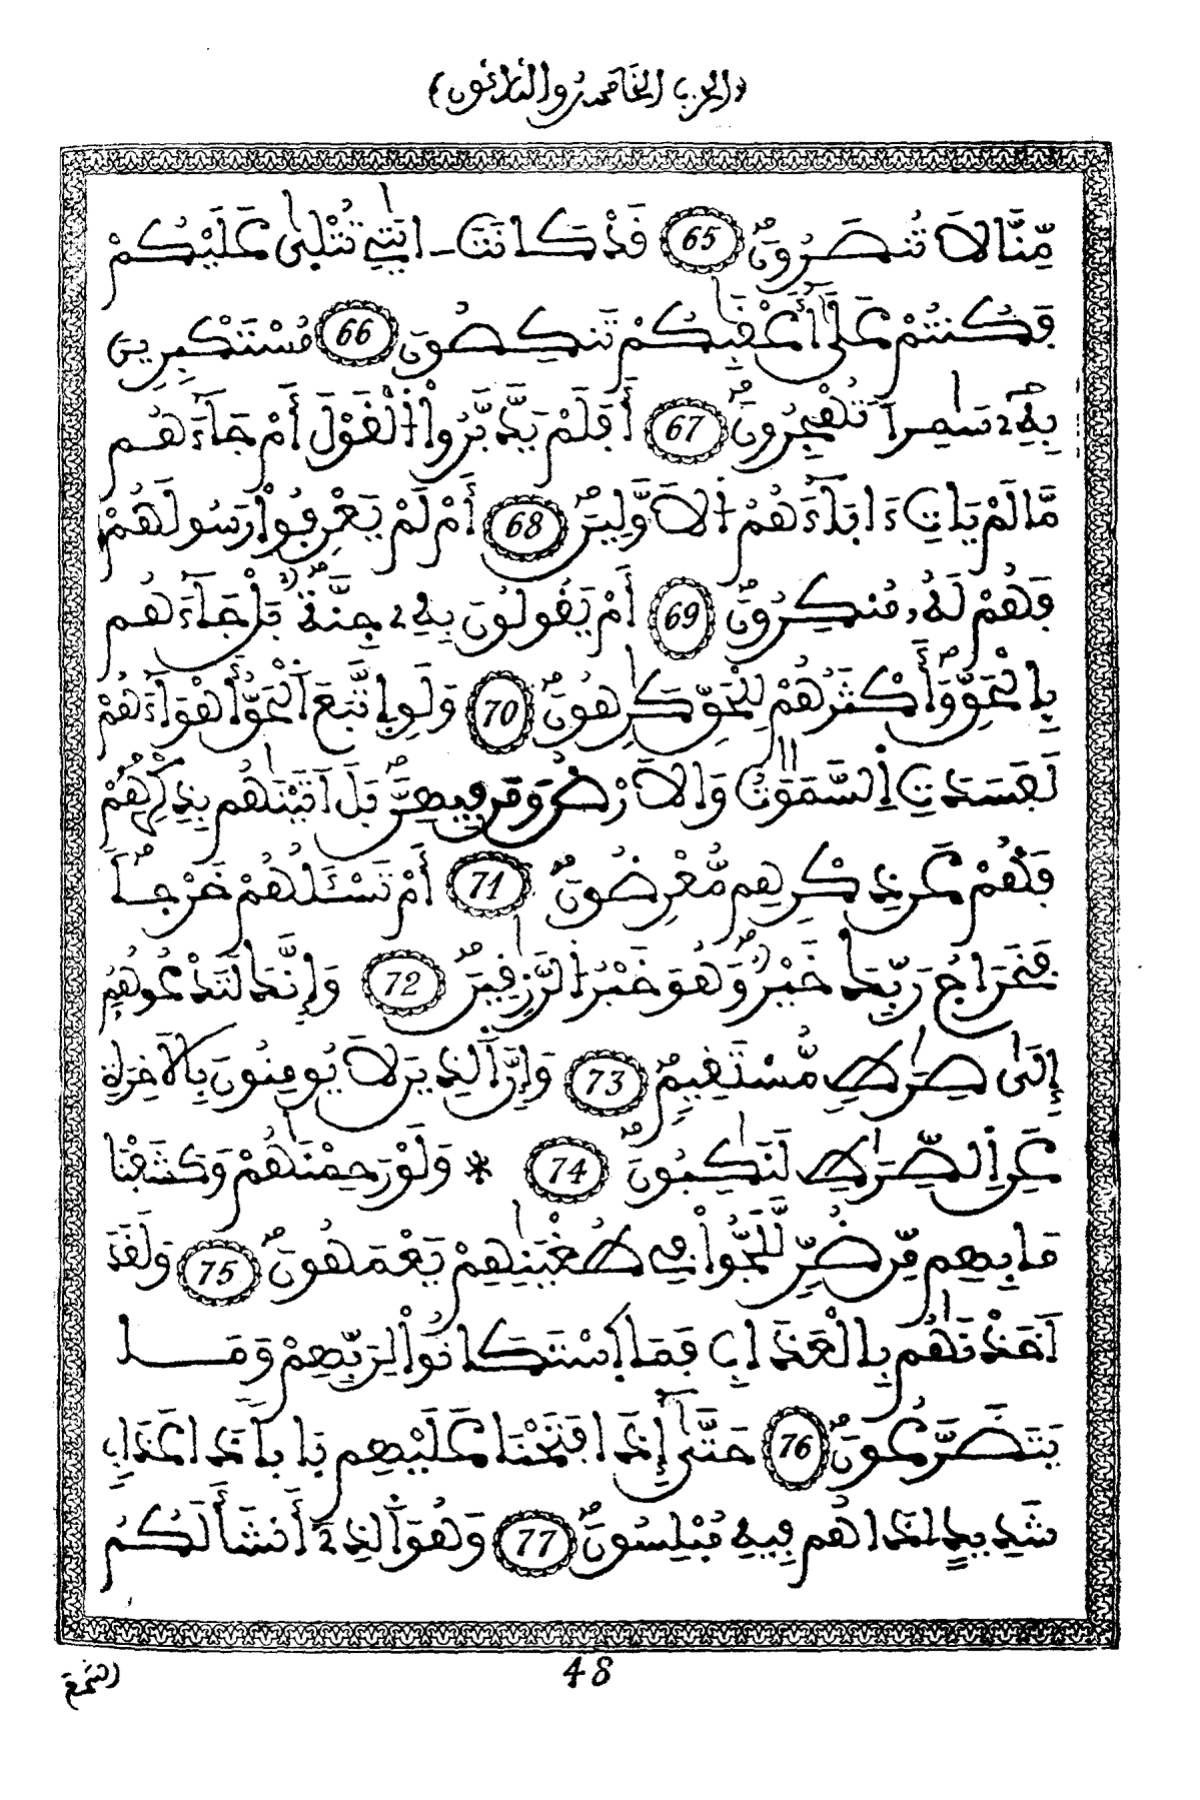 (الحزب الخامس والثلاثون)
مِّنَّا لَا تُنصَرُونَ 65 قَدْ كَانَتَ ـ ايَٰتِي تُتْلَىٰ عَلَيْكُمْ
فَكُنتُمْ عَلَىٰٓ أَعْقَٰبِكُمْ تَنكِصُونَ 66 مُسْتَكْبِرِينَ
بِهِۦ سَٰمِراً تُهْجِرُونَ 67 أَفَلَمْ يَدَّبَّرُوا۟ الْقَوْلَ أَمْ جَآءَهُم
مَّا لَمْ يَاتِ ءَابَآءَهُمُ الَاوَّلِينَ 68 أَمْ لَمْ يَعْرِفُوا۟ رَسُولَهُمْ
فَهُمْ لَهُۥ مُنكِرُونَ 69 أَمْ يَقُولُونَ بِهِۦ جِنَّةٌ بَلْ جَآءَهُم
بِالْحَقِّ وَأَكْثَرُهُمْ لِلْحَقِّ كَٰرِهُونَ 70 وَلَوِ اِتَّبَعَ اَلْحَقُّ أَهْوَآءَهُمْ
لَفَسَدَتِ اِلسَّمَٰوَٰتُ وَالَارْضُ وَمَن فِيهِنَّ بَلَ اَتَيْنَٰهُم بِذِكْرِهِمْ
فَهُمْ عَن ذِكْرِهِم مُّعْرِضُونَ 71 أَمْ تَسْـَٔلُهُمْ خَرْجاً
فَخَرَاجُ رَبِّكَ خَيْرٌ وَهُوَ خَيْرُ الرَّٰزِقِينَ 72 وَإِنَّكَ لَتَدْعُوهُمُ
إِلَىٰ صِرَٰطٍ مُّسْتَقِيمٍ 73 وَإِنَّ اَلذِينَ لَا يُومِنُونَ بِالَاخِرَةِ
عَنِ اِلصِّرَٰطِ لَنَٰكِبُونَ 74 * وَلَوْ رَحِمْنَٰهُمْ وَكَشَفْنَا
مَا بِهِم مِّن ضُرٍّ لَّلَجُّوا۟ فِي طُغْيَٰنِهِمْ يَعْمَهُونَ 75 وَلَقَدَ
اَخَذْنَٰهُم بِالْعَذَابِ فَمَا اَسْتَكَانُوا۟ لِرَبِّهِمْ وَمَا
يَتَضَرَّعُونَ 76 حَتَّىٰٓ إِذَا فَتَحْنَا عَلَيْهِم بَاباً ذَا عَذَابٍ
شَدِيدٍ اِذَا هُمْ فِيهِ مُبْلِسُونَ 77 وَهُوَ اَلذِي أَنشَأَ لَكُمُ
48